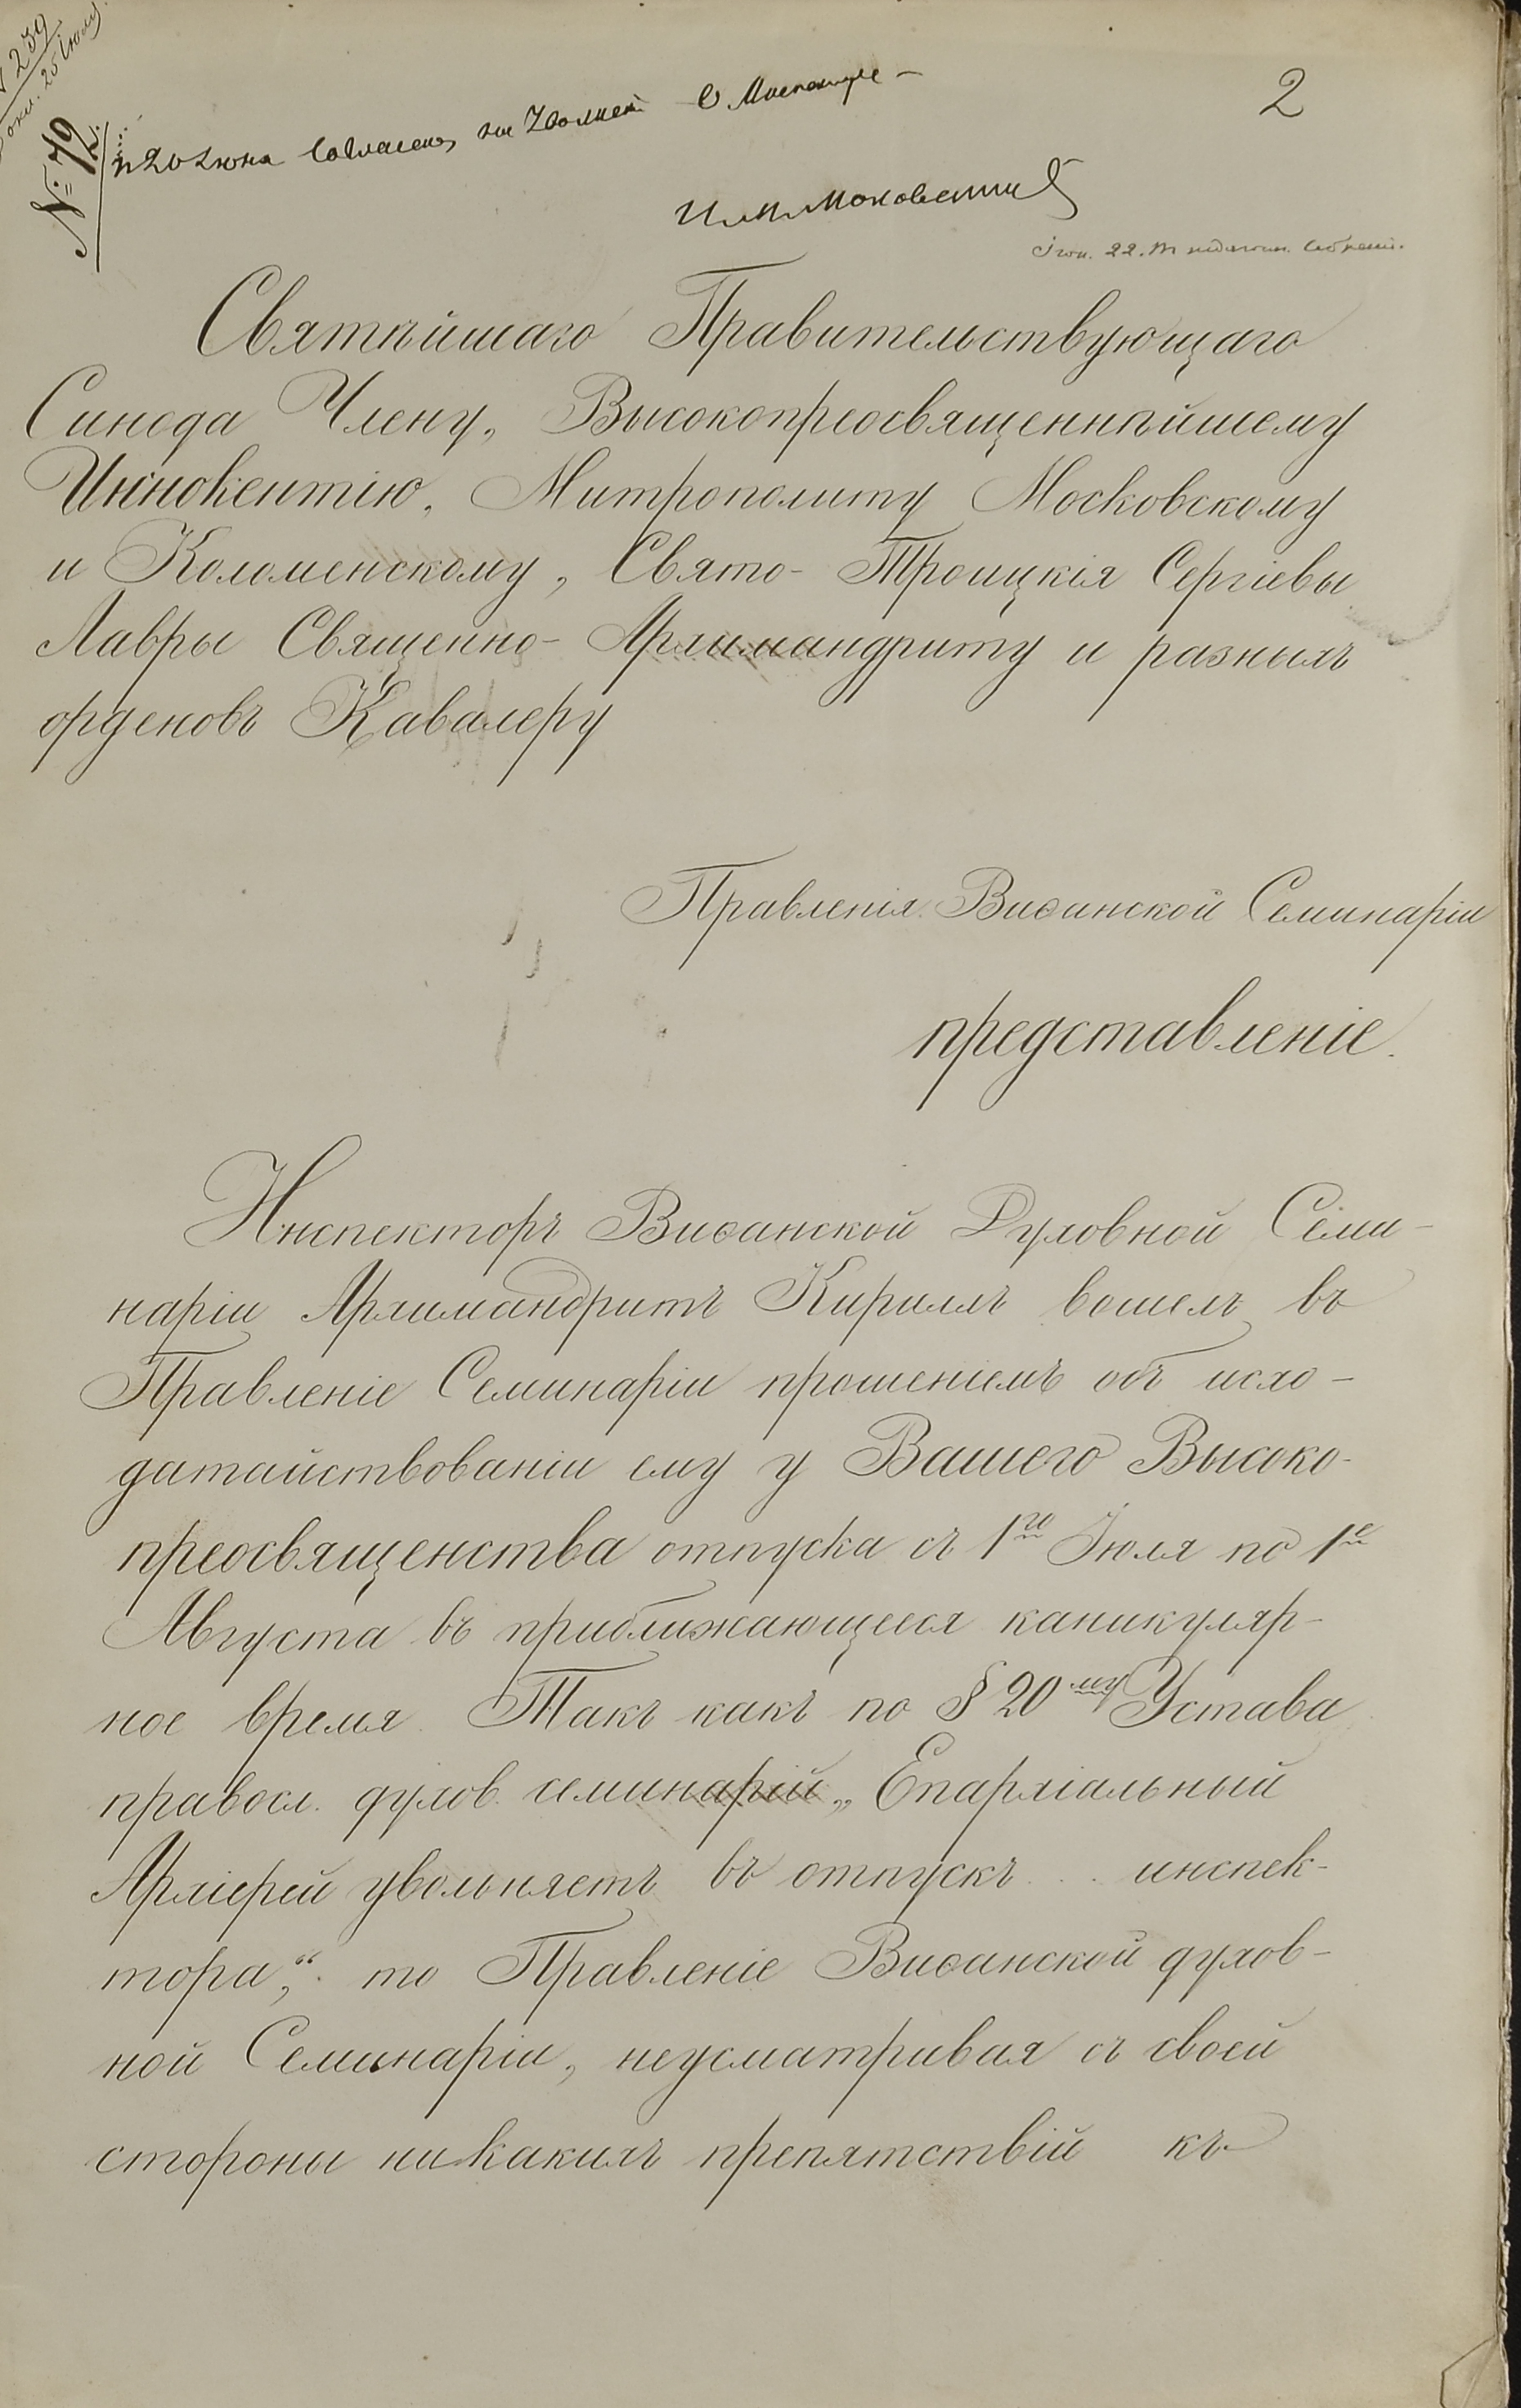 2
№ 239
25 Іюня
№ 72
20 Іюня Согласенъ на
И М Московскій
Іюн. 22.
Святѣйшаго Правительствующаго
Синода Члену, Высокопреосвященнѣйшему
Иннокентію, Митрополиту Московскому
и Коломенскому, Свято-Троицкія Сергіевы
Лавры Священно-Архимандриту и разныхъ
орденовъ Кавалеру
Правленія Виѳанской Семинаріи
представленіе.
Инспекторъ Виѳанской Духовной Семи-
наріи Архимандритъ Кириллъ вошелъ въ
Правленіе Семинаріи прошеніемъ объ исхо-
датайствованіи ему у Вашего Высоко-
преосвященства отпуска съ 1го Іюля по 1е
Августа въ приближающееся каникуляр-
ное время. Такъ какъ по § 20му Устава
правосл. духов. семинарій „Епархіальный
Архіерей увольняетъ въ отпускъ . . . инспек-
тора,“ то Правленіе Виѳанской духов-
ной Семинаріи, неусматривая съ своей
стороны никакихъ препятствій къ